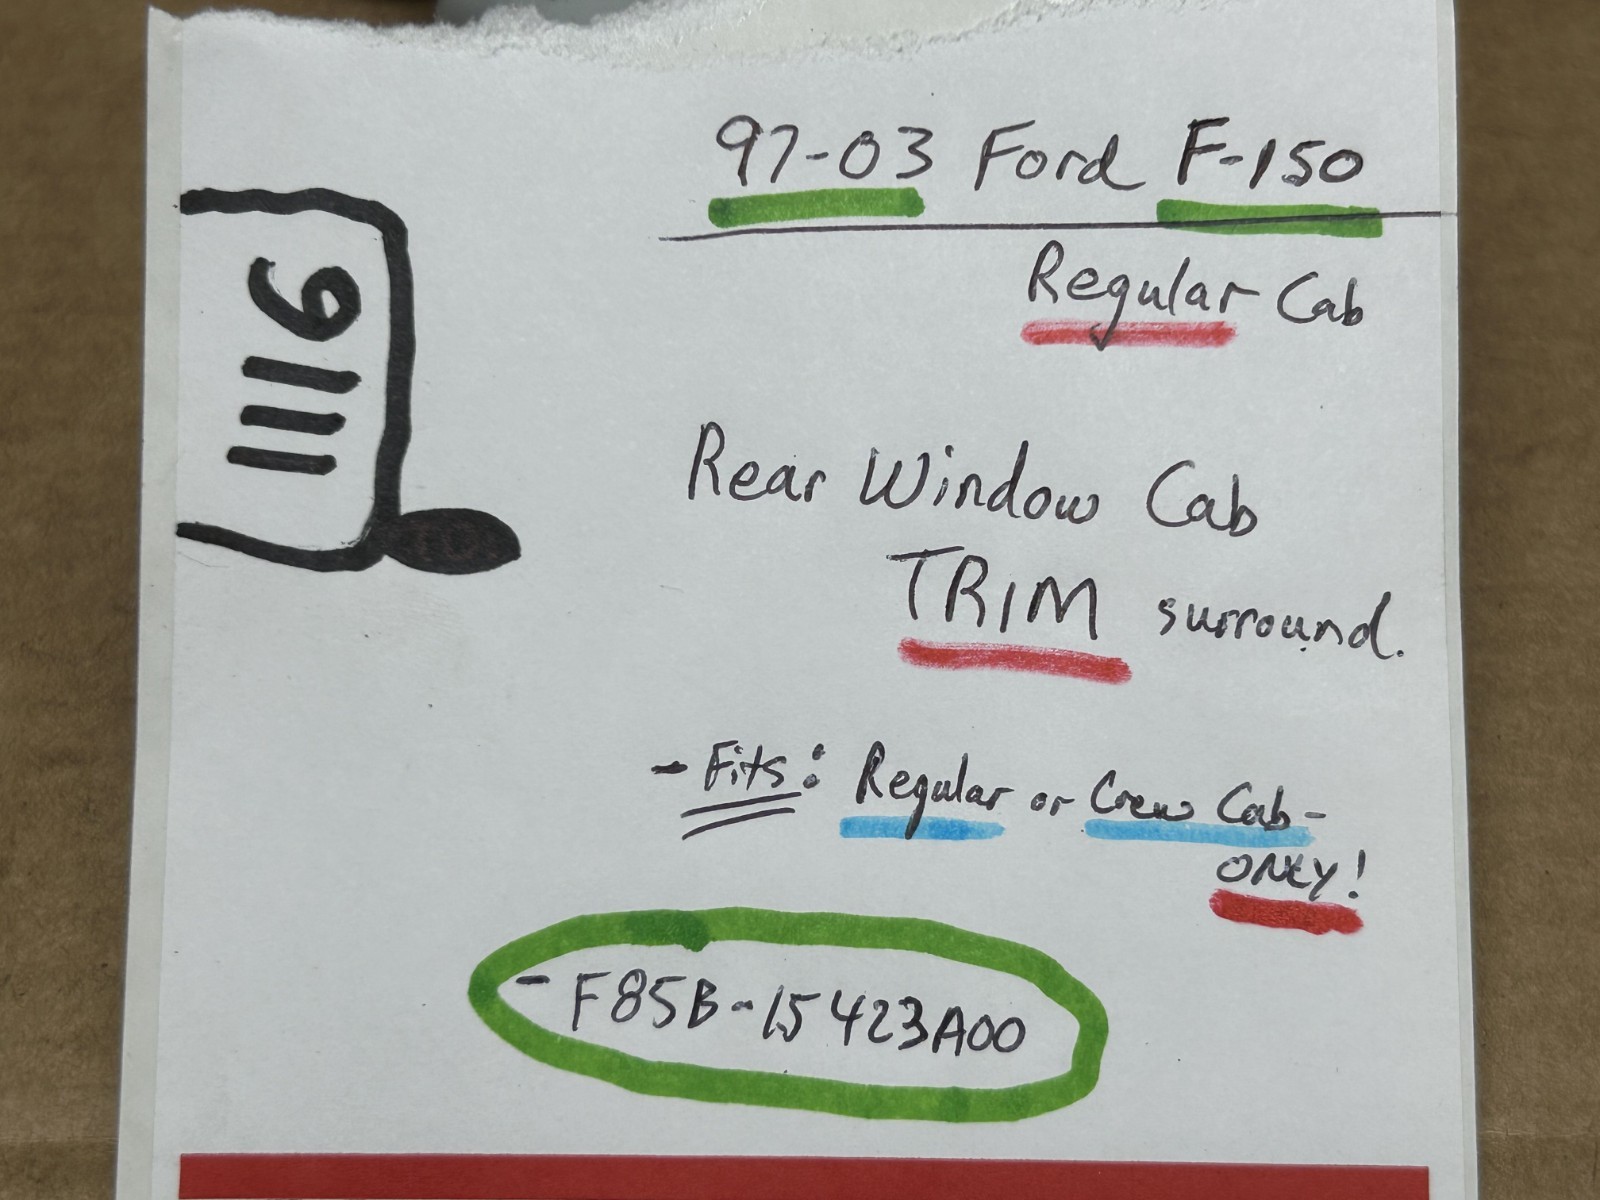 97-03 Ford F-150
Regular Cab
1116
Rear Window Cab
TRIM surround.
- Fits: Regular or Crew Cab-
ONLY!
- F85B-15423A00